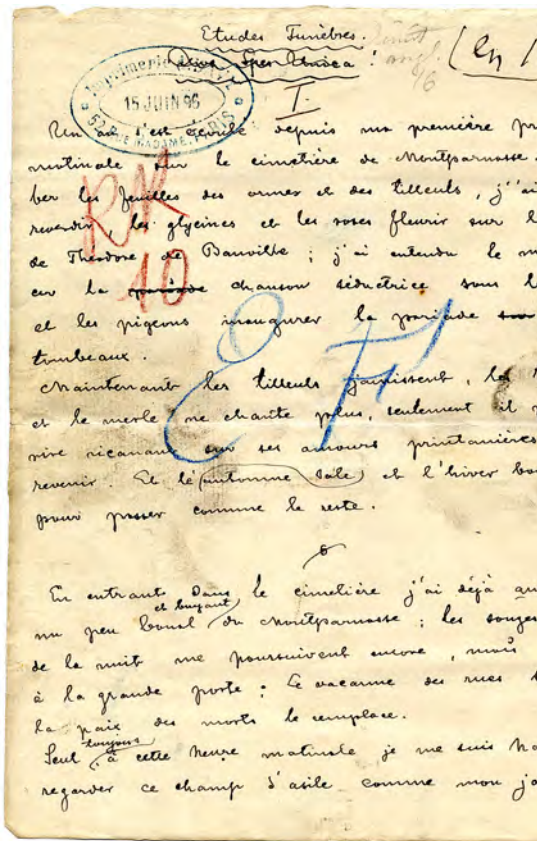 Etudes Funèbres.
Spes Unica !
(En
Imprimerie
15 JUIN 96
RUE MADAME. PARIS
I.
Un an s'est écoulé depuis ma première pr
matinale sur le cimetière de Montparnasse.
ber les feuilles des ormes et des tilleuls, j'ai
reverdir, les glycines et les roses fleurir sur l
de Théodore de Banville ; j'ai entendu le m
sa chanson séductrice sous l
et les pigeons inaugurer la pariade
tombeaux.
RR
10
E F
Maintenant les tilleuls jaunissent, les
et le merle ne chante plus, seulement il
rire ricanant sur ses amours printanières
revenir. Et l'automne sale et l'hiver
pour passer comme le reste.
En entrant dans le cimetière j'ai déjà qu
et bruyant
un peu banal du Montparnasse ; les songes
de la nuit me poursuivent encore, mais
à la grande porte ; Le vacarme des rues
la paix des morts le remplace.
toujours
Seul à cette heure matinale je me suis ha
regarder ce champ d'asile comme mon ja